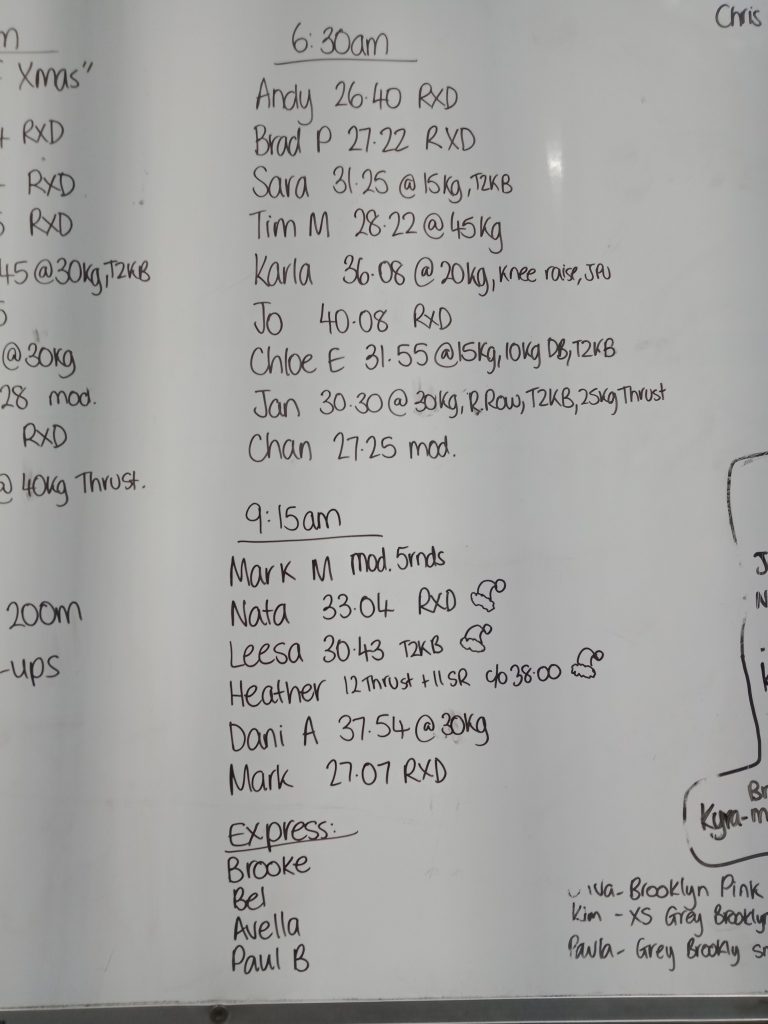 Xmas"
RXD
RXD
RXD
45 @30kg, T2KB
@30kg
28 mod.
RXD
@ 40kg Thrust.
200m
-ups
6:30am
Andy 26.40 RXD
Brad P 27.22 RXD
Sara 31.25 @15kg, T2KB
Tim M 28.22 @45kg
Karla 36.08 @20kg, knee raise, JPU
Jo 40.08 RXD
Chloe E 31.55 @15kg, 10kg DB, T2KB
Jan 30.30 @ 30kg, R.Row, T2KB, 25kg Thrust
Chan 27.25 mod.
9:15am
Mark M mod. 5rnds
Nata 33.04 RXD
Leesa 30.43 T2KB
Heather 12 Thrust + 11 SR c/o 38:00
Dani A 37.54 @30kg
Mark 27.07 RXD
Express:
Brooke
Bel
Avella
Paul B
Chris
Kyra-m
Brooklyn Pink
Kim - XS Grey Brooklyn
Paula- Grey Brookly sm